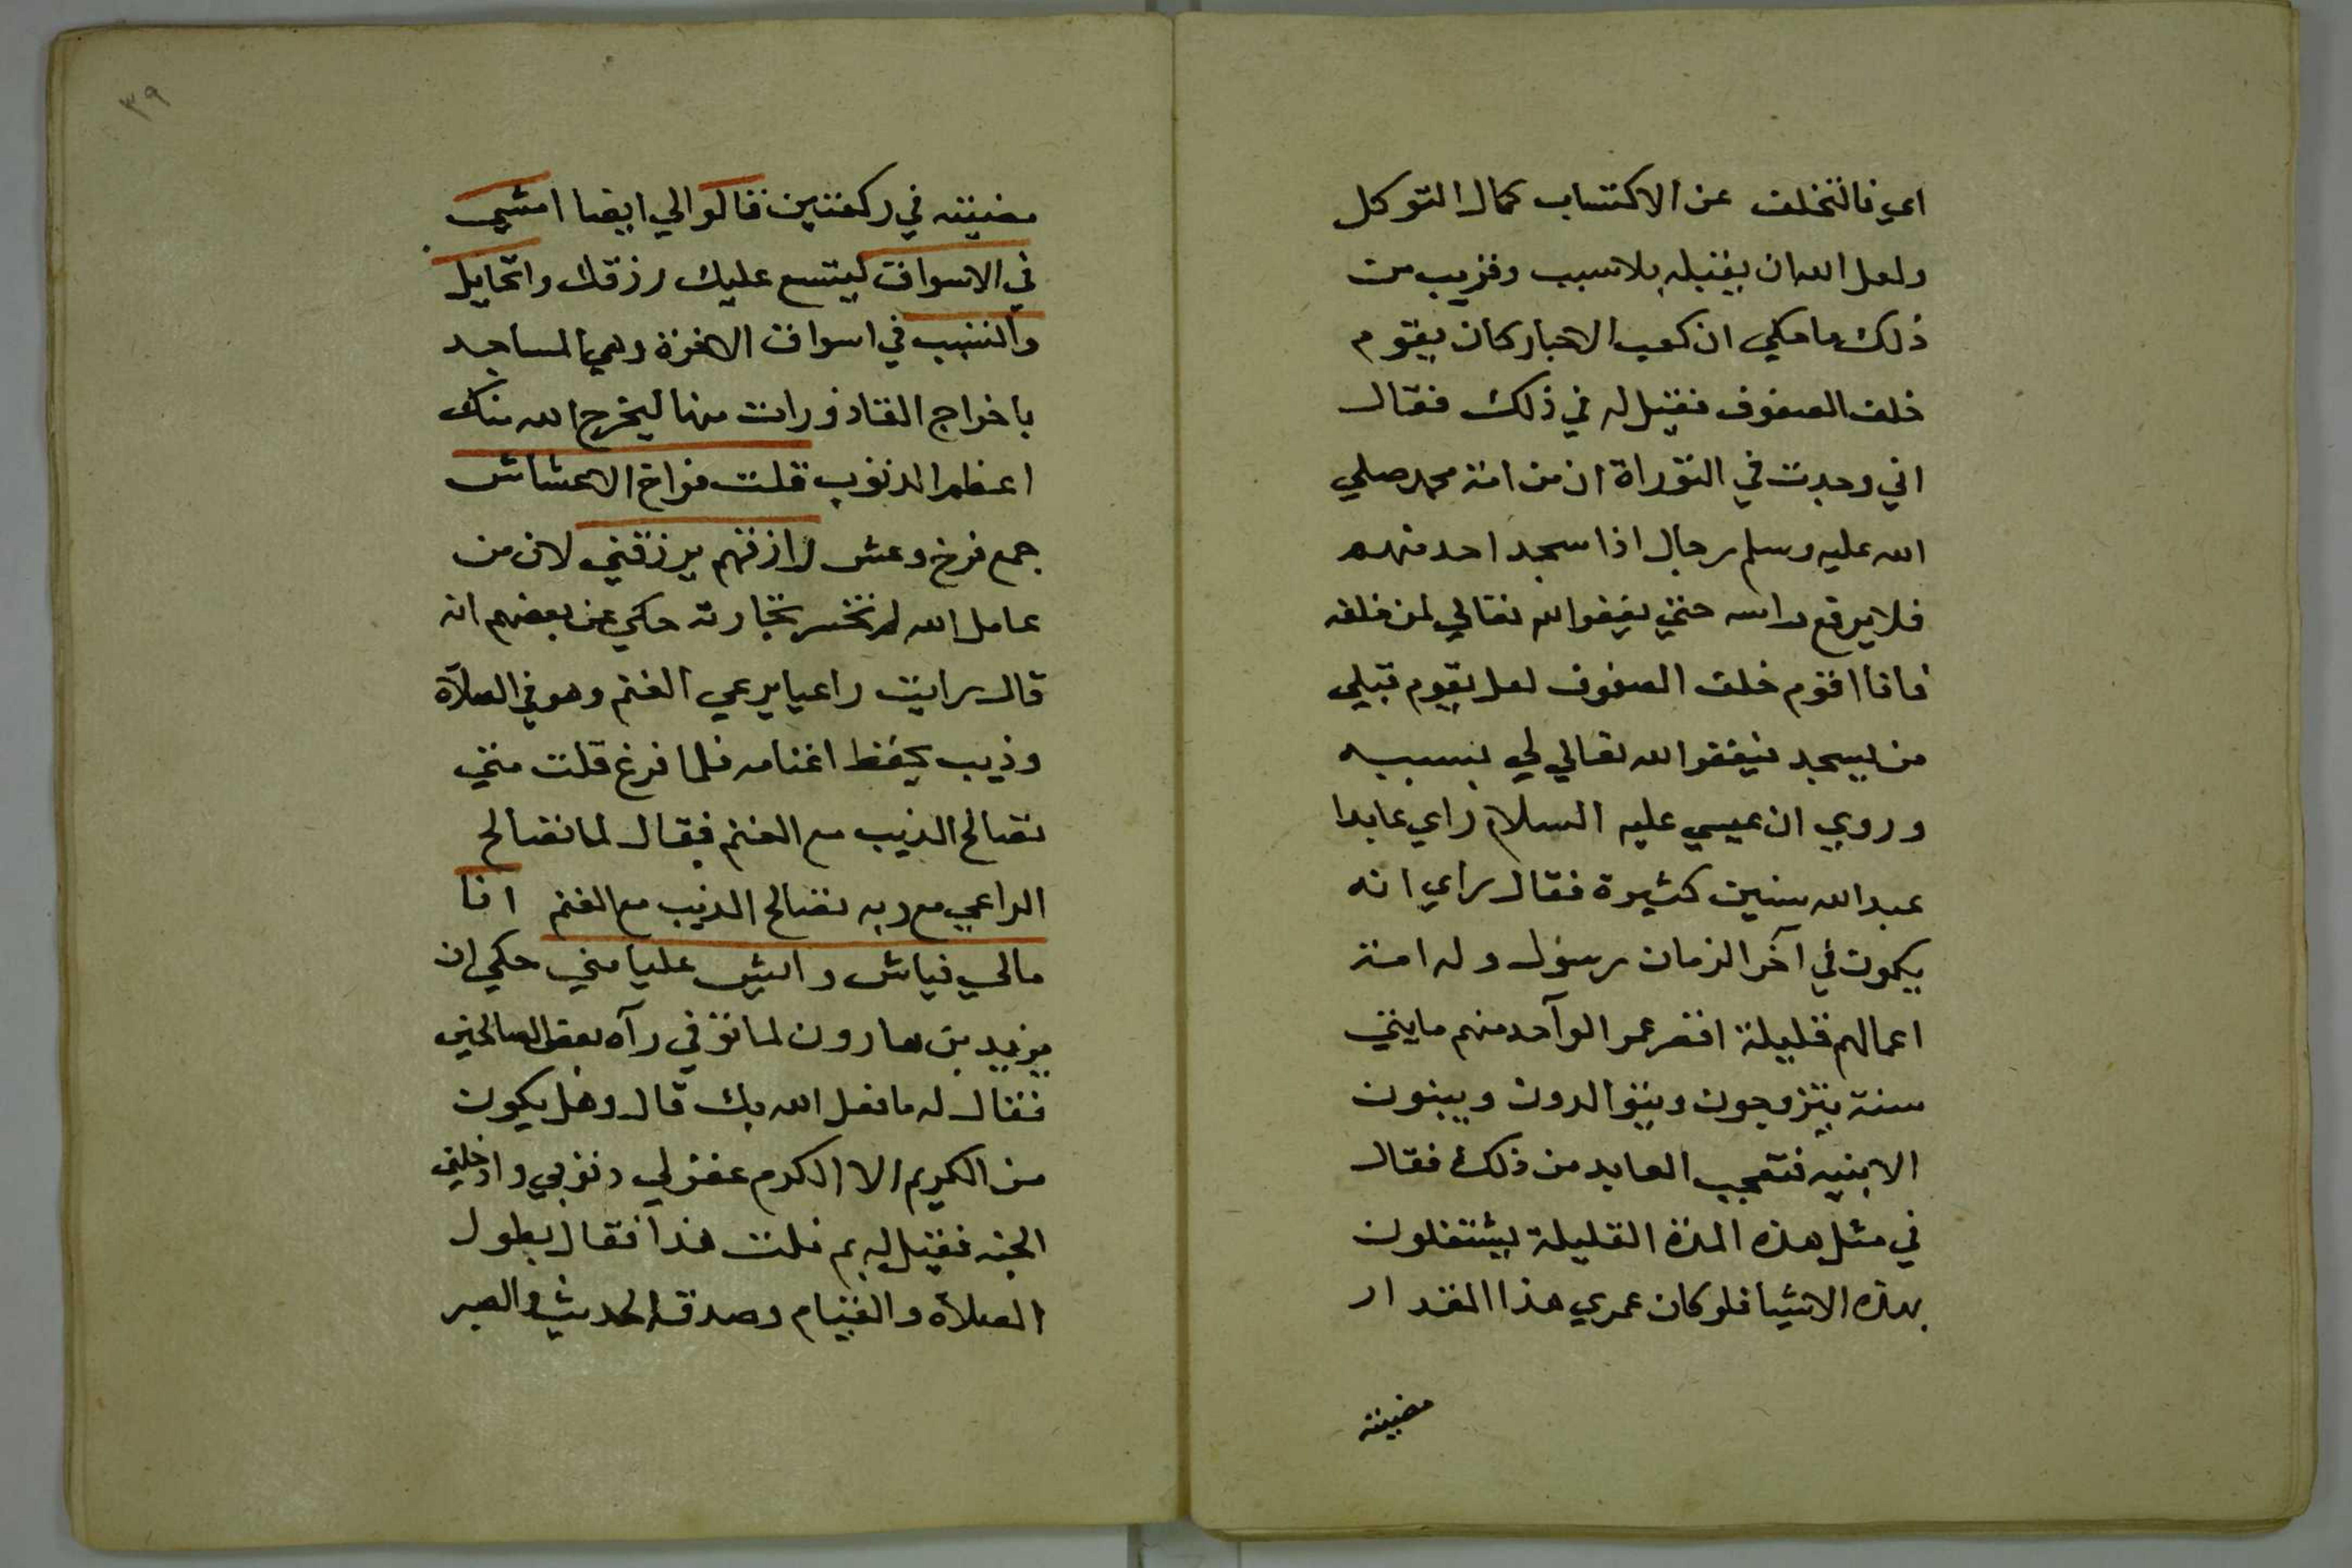 اي فالتخلف عن الاكتساب كمال التوكل
ولعل الله ان يقبله بلا سبب وقريب من
ذلك ما حكي ان كعب الاحبار كان يقوم
خلف الصفوف فقيل له في ذلك فقال
اني وجدت في التوراة ان من امة محمد صلي
الله عليه وسلم رجال اذا سجد احد منهم
فلا يرفع راسه حتي يغفر الله تعالي لمن خلفه
فانا اقوم خلف الصفوف لعل يقوم قبلي
من يسجد فيغفر الله تعالي لي بسببه
وروي ان عيسي عليه السلام راي عابدا
عبد الله سنين كثيرة فقال راي انه
يكون في آخر الزمان رسول وله امة
اعمالهم قليلة اقصر عمر الواحد منهم مايتي
سنة يتزوجون ويتوالدون ويبنون
الابنيه فتعجب العابد من ذلك فقال
في مثل هذه المدة القليلة يشتغلون
بهذه الاشيا فلو كان عمري هذا المقدار
مضيته
٣٩
مضيته في ركعتين قالوا لي ايضا امشي
في الاسواق ليتسع عليك رزقك واتحايل
والتسبب في اسواق الاخرة وهي المساجد
باخراج القاذورات منها ليخرج الله منك
اعظم الذنوب قلت فراخ الاعشاش
جمع فرخ وعش رازقهم يرزقني لان من
عامل الله لم تخسر تجارته حكي عن بعضهم انه
قال رايت راعيا يرعي الغنم وهو في الصلاة
وذيب يحفظ اغنامه فلما فرغ قلت متي
تصالح الذيب مع الغنم فقال لما تصالح
الراعي مع ربه تصالح الذيب مع الغنم انا
مالي فياش وايش عليا مني حكي ان
يزيد بن هارون لما توفي رآه بعض الصالحين
فقال له ما فعل الله بك قال وهل يكون
من الكريم الا الكرم غفر لي ذنوبي وادخلني
الجنه فقيل له بم نلت هذا فقال بطول
الصلاة والقيام وصدق الحديث والصبر